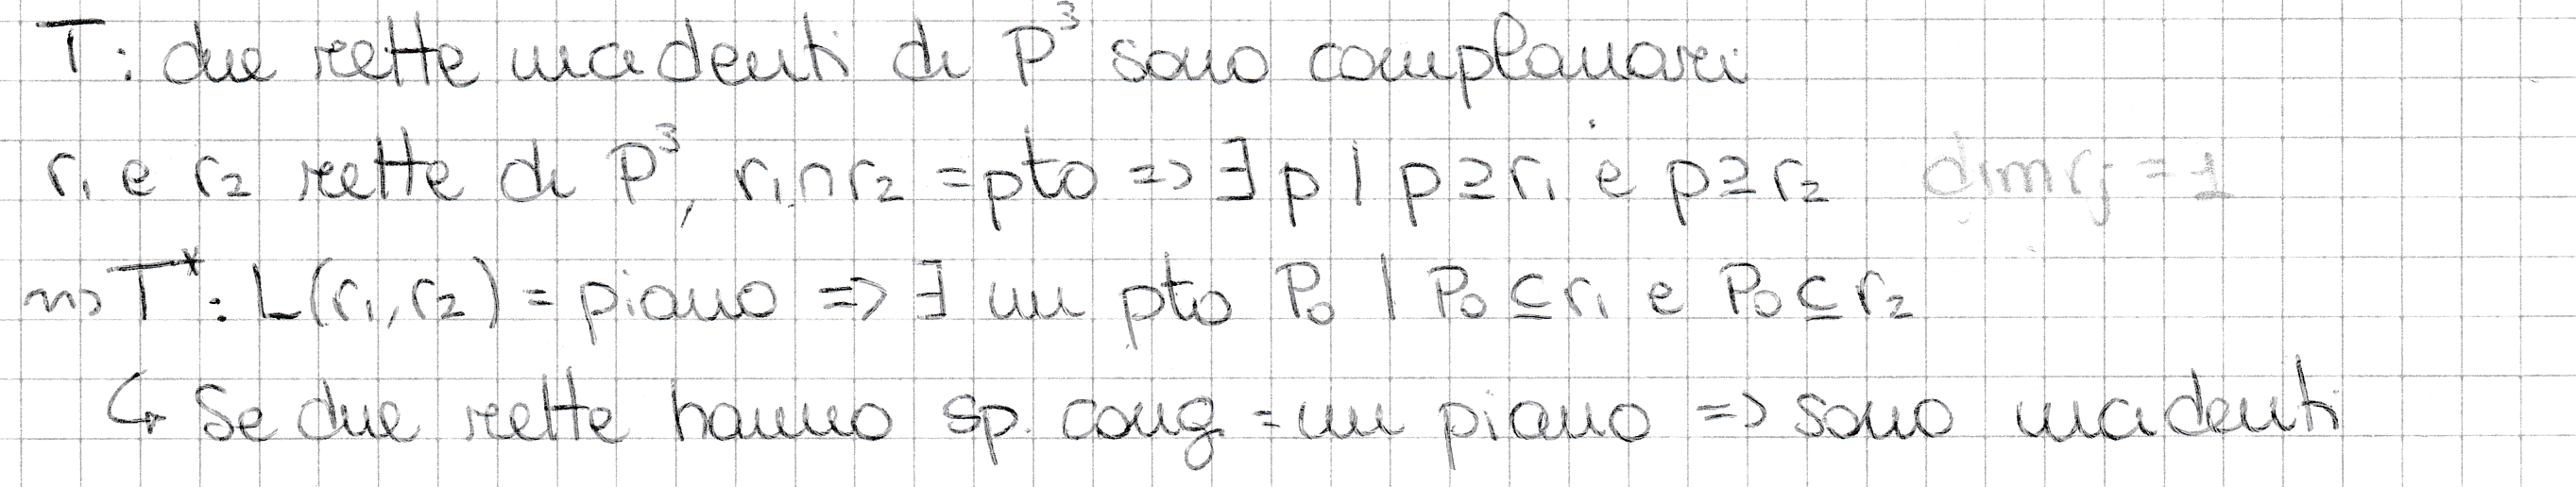 T: due rette incidenti di P³ sono complanari
r₁ e r₂ rette di P³, r₁∩r₂ = pto => ∃ p | p⊇r₁ e p⊇r₂ dim rⱼ = 1
⇝ T*: L(r₁,r₂) = piano => ∃ un pto P₀ | P₀⊆r₁ e P₀⊆r₂
↳ Se due rette hanno sp. cong = un piano => sono incidenti